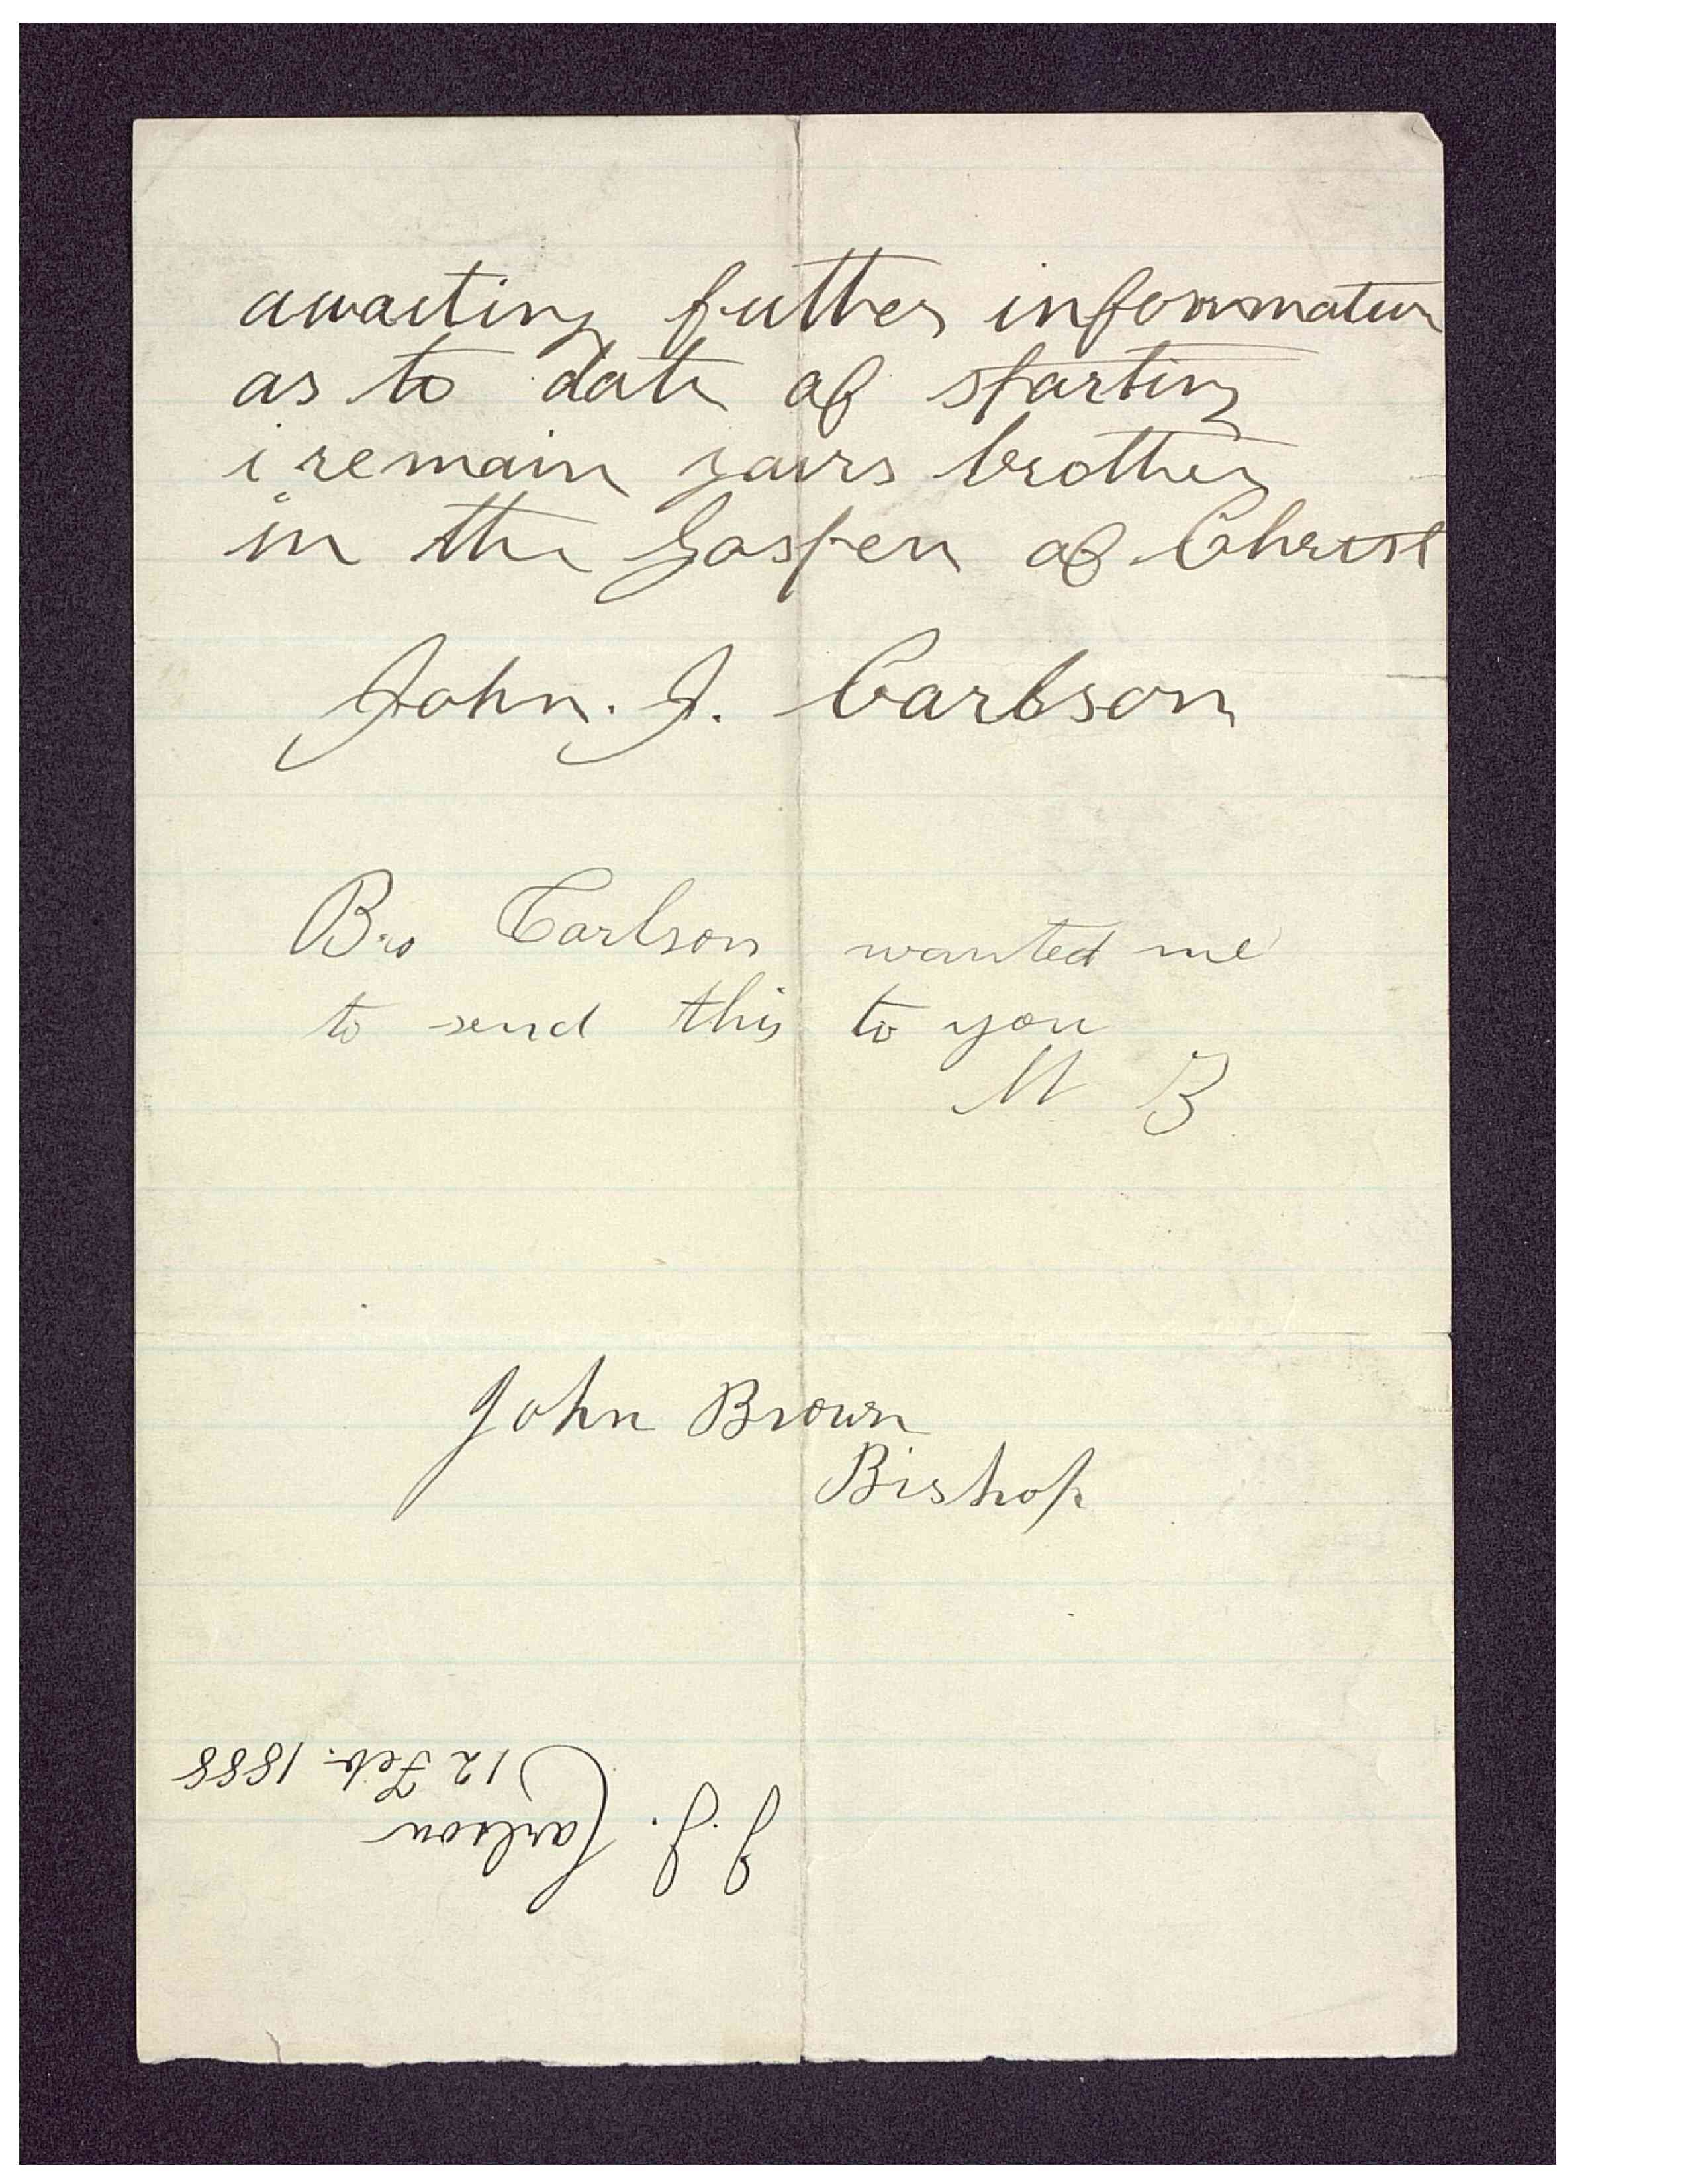 awaiting futher infornmation
as to date of starting
i remain yours brother
in the Gospen of Christ
John. J. Carlson
Bro Carlson wanted me
to send this to you
M B
John Brown
Bishop
J. J. Carlson
12 Feb. 1888